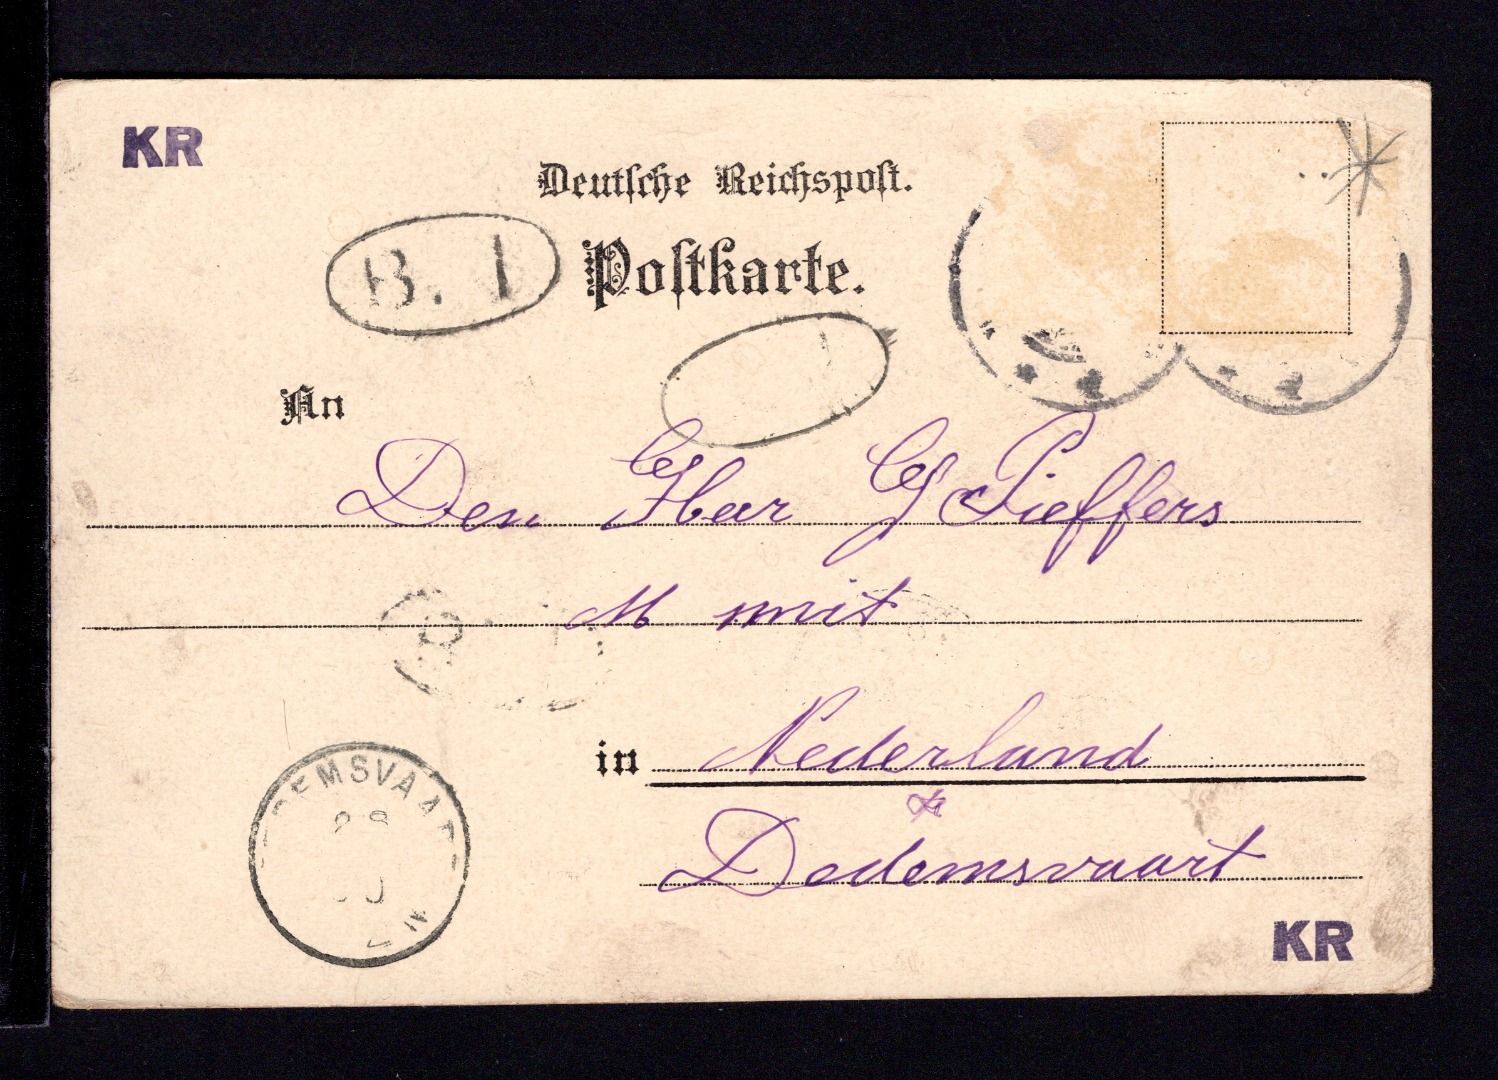 KR
Deutsche Reichspost.
B. 1
Postkarte.
An
Den Heer G Pieffers
M smit
in Nederland
Dedemsvaart
DEMSVAAR
28
KR